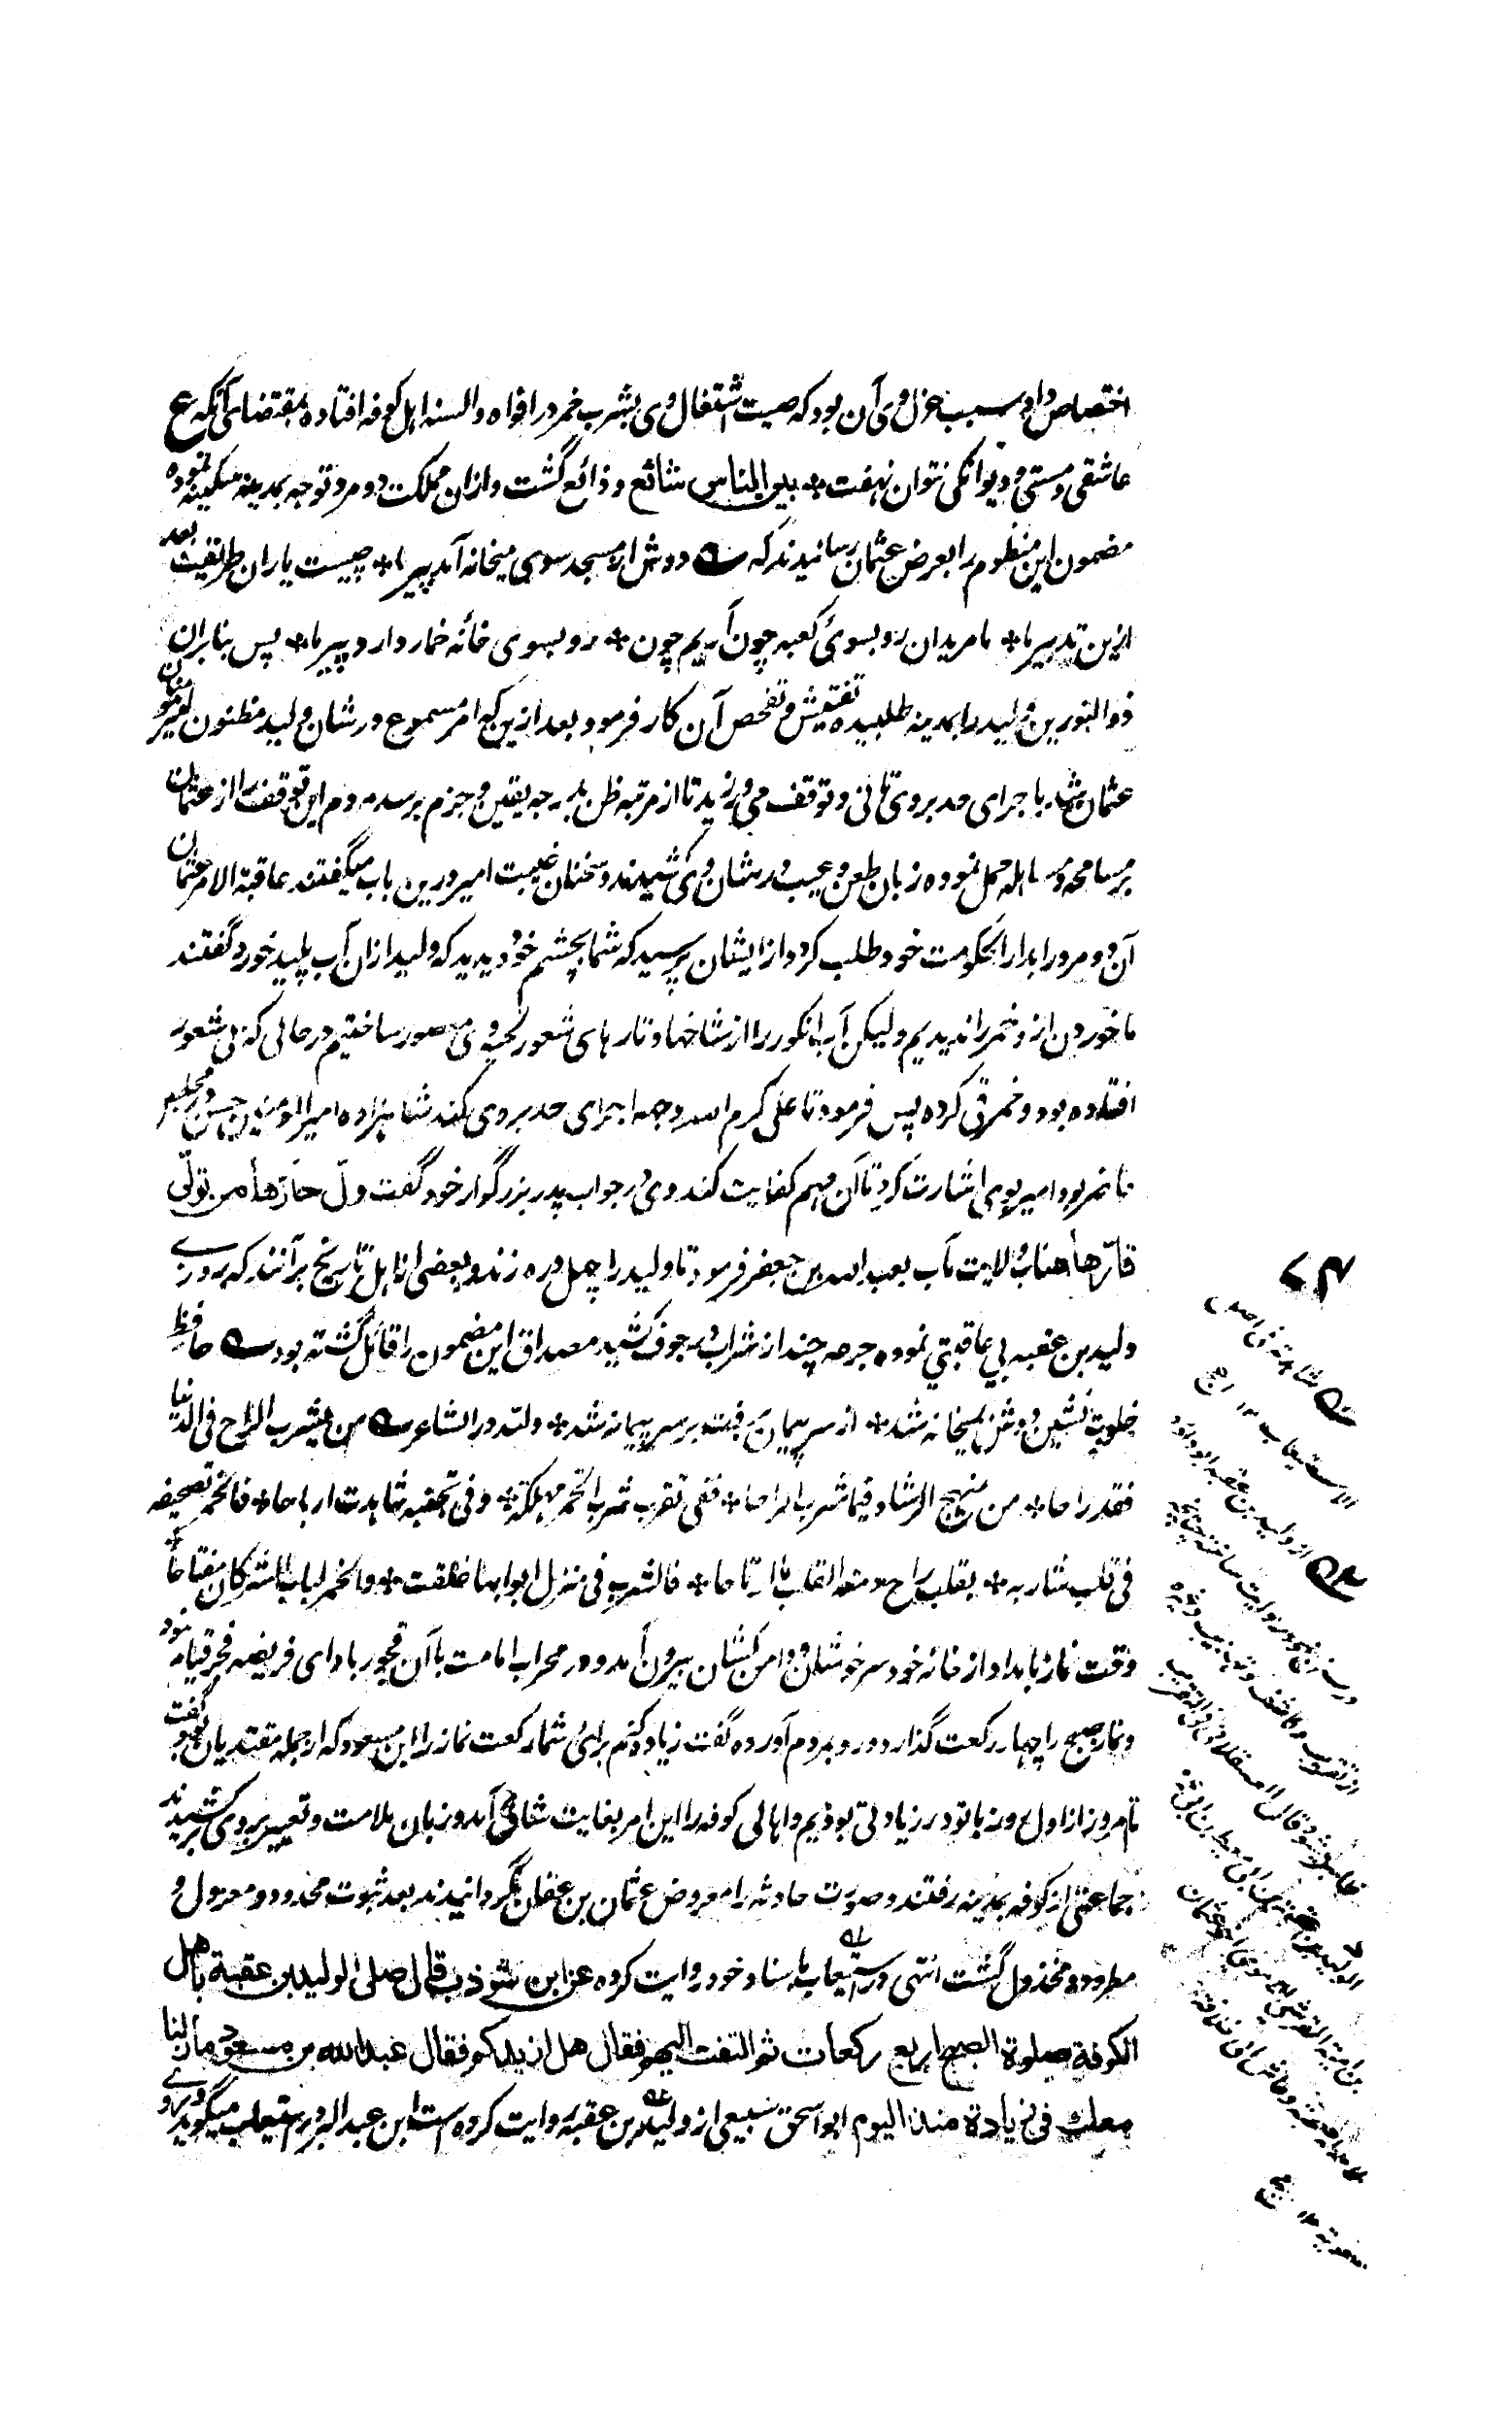 اختصاص داد و سبب عزل وی آن بود که صیت اشتغال وی بشرب خمر در افواه والسنه اهل کوفه افتاده بمقتضای آنکه ع
عاشقی و مستی و دیوانگی نتوان نهفت * بین الناس شائع و ذائع گشت و ازان مملکت دو مرد توجه بمدینه سکینه نموده
مضمون این منظوم را بعرض عثمان رسانیدند که دوش از مسجد سوی میخانه آمد پیر ما * چیست یاران طریقت بعد
ازین تدبیر ما * ما مریدان رو بسوی کعبه چون آریم چون * رو بسوی خانه خمار دارد پیر ما * پس بنابران
ذوالنورین ولید را بمدینه طلبیده تفتیش و تفحص آن کار فرمود بعد ازین که امر مسموع در شان ولید مظنون امیر مومنان
عثمان شد باجرای حد بر وی تانی و توقف می ورزید تا از مرتبه ظن بدرجه یقین و جزم برسد مردم این توقف را از عثمان
بر مسامحه و مساهله حمل نموده زبان طعن و عیب در شان وی کشیدند و سخنان غیبت امیر درین باب میگفتند عاقبة الامر عثمان
آن دو مرد را بدار الحکومت خود طلب کرد و از ایشان پرسید که شما بچشم خود دیدید که ولید ازان آب پلید خورد گفتند
ما خوردن از و خمر را ندیدیم و لیکن آب انگور را از شاخها و تارهای شعور لحیه وی معصور ساختیم در حالی که بی شعور
افتاده بود و خمر قی کرده پس فرمود تا علی کرم الله وجهه اجرای حد بر وی کند شاهزاده امیر المومنین حسن در مجلس
حاضر بود امیر بوی اشارت کرد تا آن مهم کفایت کند وی در جواب پدر بزرگوار خود گفت ولّ حارّها من تولّی
قارّها جناب ولایت مآب بعبد الله بن جعفر فرمود تا ولید را چهل دره زند و بعضی از اهل تاریخ برآنند که روزے
ولید بن عقبه بی عاقبتی نموده جرعه چند از شراب در جوف کشید مصداق این مضمون را قائل گشته بود حافظ
خلوت نشین دوش بمیخانه شد * از سر پیمان برفت بر سر پیمانه شد * ولله در الشاعر من یشرب الراح فی الدنیا
فقد راحا * من منهج الرشاد فیما شرب الراحا * ففی تقرب شرب الخمر مهلکة * و فی تجنبه شاهدت ارباحا * فالخمر تصحیفه
فی قلب شاربه * بقلب راح ومنه القلب ما ارتاحا * فالشر فی منزل ابوابها خلقت * والخمر لباب الشر کان مفتاحا *
وقت نماز بامداد از خانه خود سرخوشان و دامن کشان بیرون آمد و در محراب امامت با آن فجور باداى فریضه فجر قیام نمود
و نماز صبح را چهار رکعت گذارد و رو بمردم آورده گفت زیاده کنم برای شما رکعت نماز را ابن مسعود که از جمله مقتدیان بود گفت
تا امروز از اول روز با تو در زیادتی بودیم و اهالی کوفه را این امر بغایت شاق آمد و زبان ملامت و تعییر بر وی کشیدند
جماعتی از کوفه بمدینه رفتند و صورت حادثه را معروض عثمان بن عفان گردانیدند بعد ثبوت محدود و معزول و
مطرود و مخذول گشت انتهی و در استیعاب باسناد خود روایت کرده عن ابن شوذب قال صلی الولید بن عقبة باهل
الکوفة صلوة الصبح اربع رکعات ثم التفت الیهم فقال هل ازیدکم فقال عبد الله بن مسعود ما زلنا
معک فی زیادة منذ الیوم ابو اسحق سبیعی از ولید بن عقبه روایت کرده است ابن عبد البر در استیعاب میگوید و روے
از ولید بن عقبه ابو داود